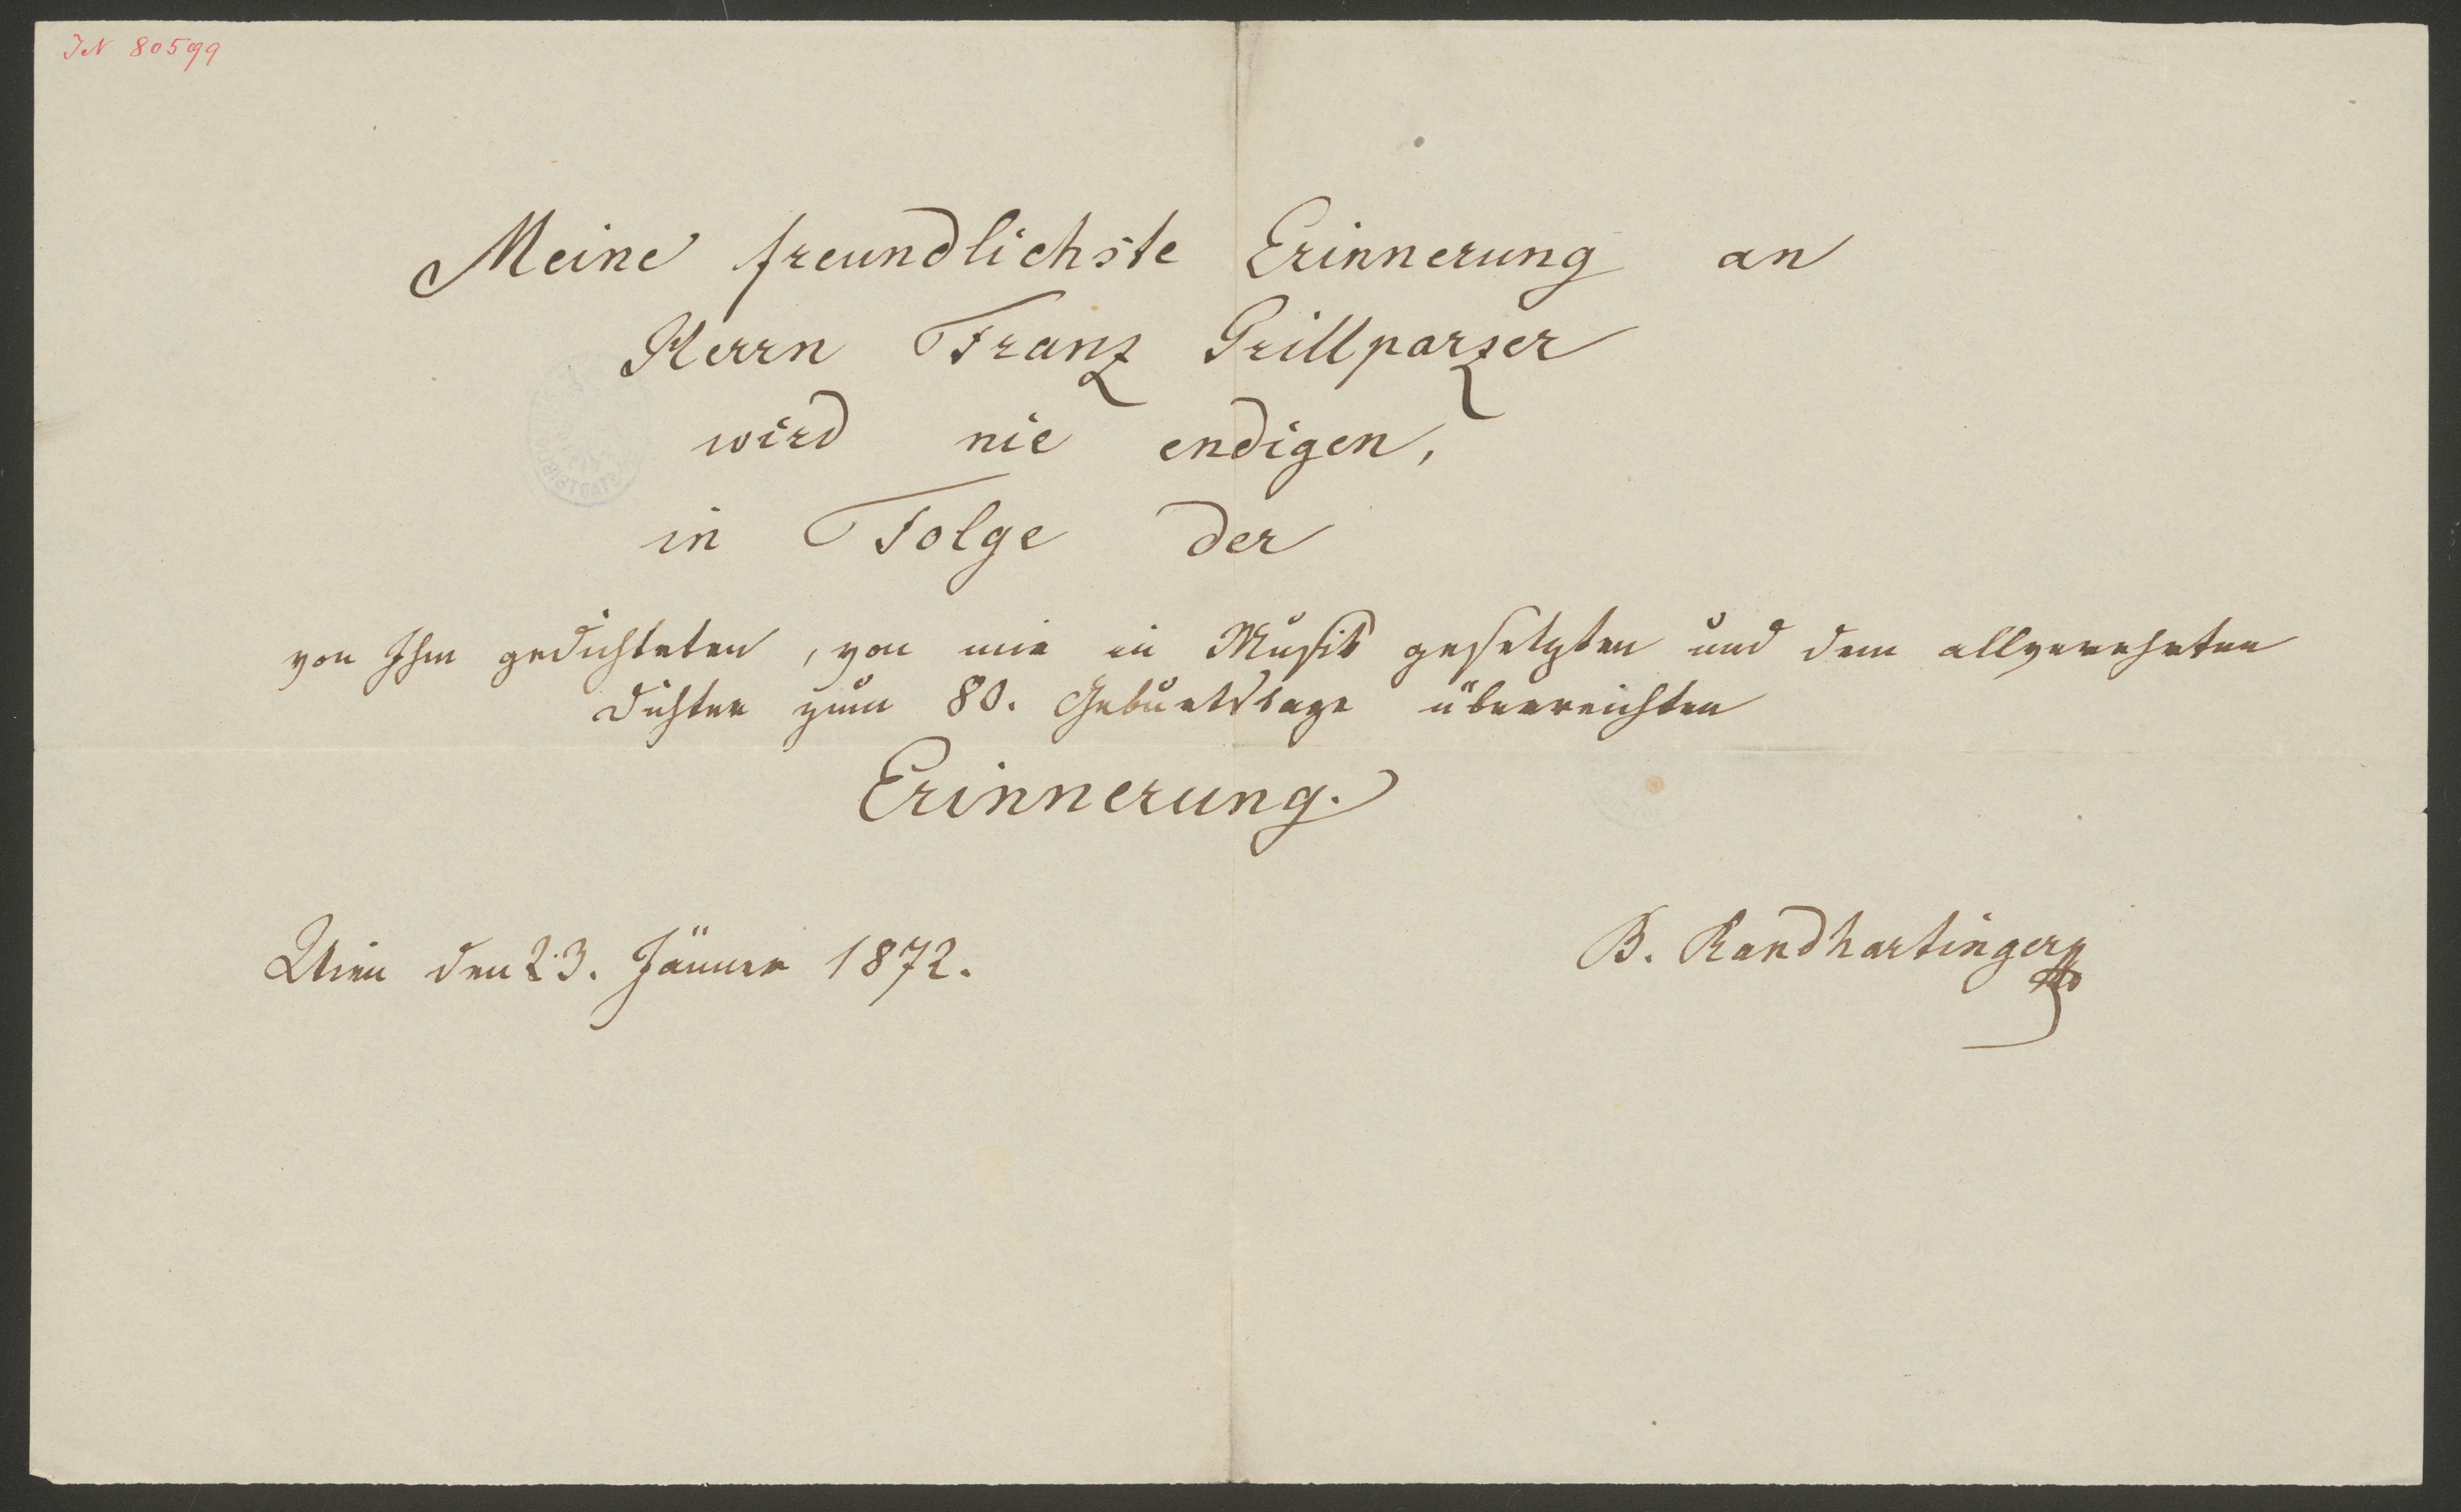 IN 80599
Meine freundlichste Erinnerung an
Herrn Franz Grillparzer
wird nie endigen,
in Folge der
von Ihm gedichteten, von mir in Musik gesetzten und dem allverehrten
Dichter zum 80. Geburtstage überreichten
Erinnerung.
Wien den 23. Jänner 1872.
B. Randhartinger